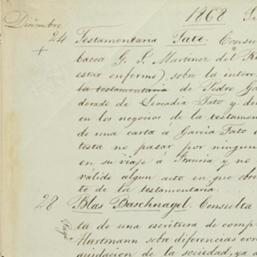 1868
Diciembre
24 Testamentaria Tate. Consu
bacoa G. S. Martinez del R
estar enfermo) sobre la inter
la testamentaria de Pedro Ga
derado de Leocadia Tato y de
en los negocios de la testamen
de una carta á Garcia Tato
testa no pasar por ningun
en su viaje á Francia y no
valido algun acto en que
to de la testamentaria.
28 Blas Daschnagel. Consulta
ta de una escritura de comp
Hartmann sobre diferencias con
quidacion de la sociedad, ya